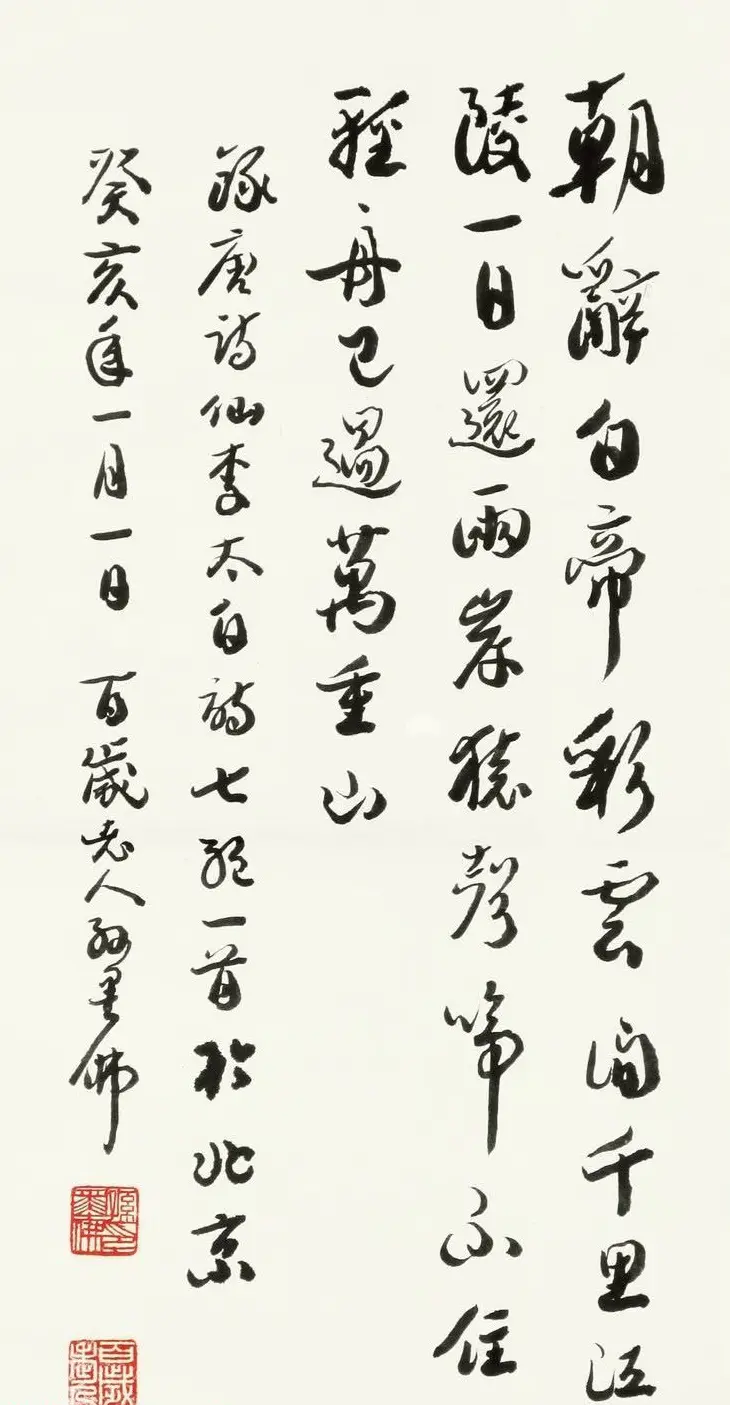 朝辭白帝彩雲間千里江
陵一日還兩岸猿聲啼不住
輕舟已過萬重山
錄唐詩仙李太白詩七絕一首於北京
癸亥年一月一日 百歲老人孫墨佛